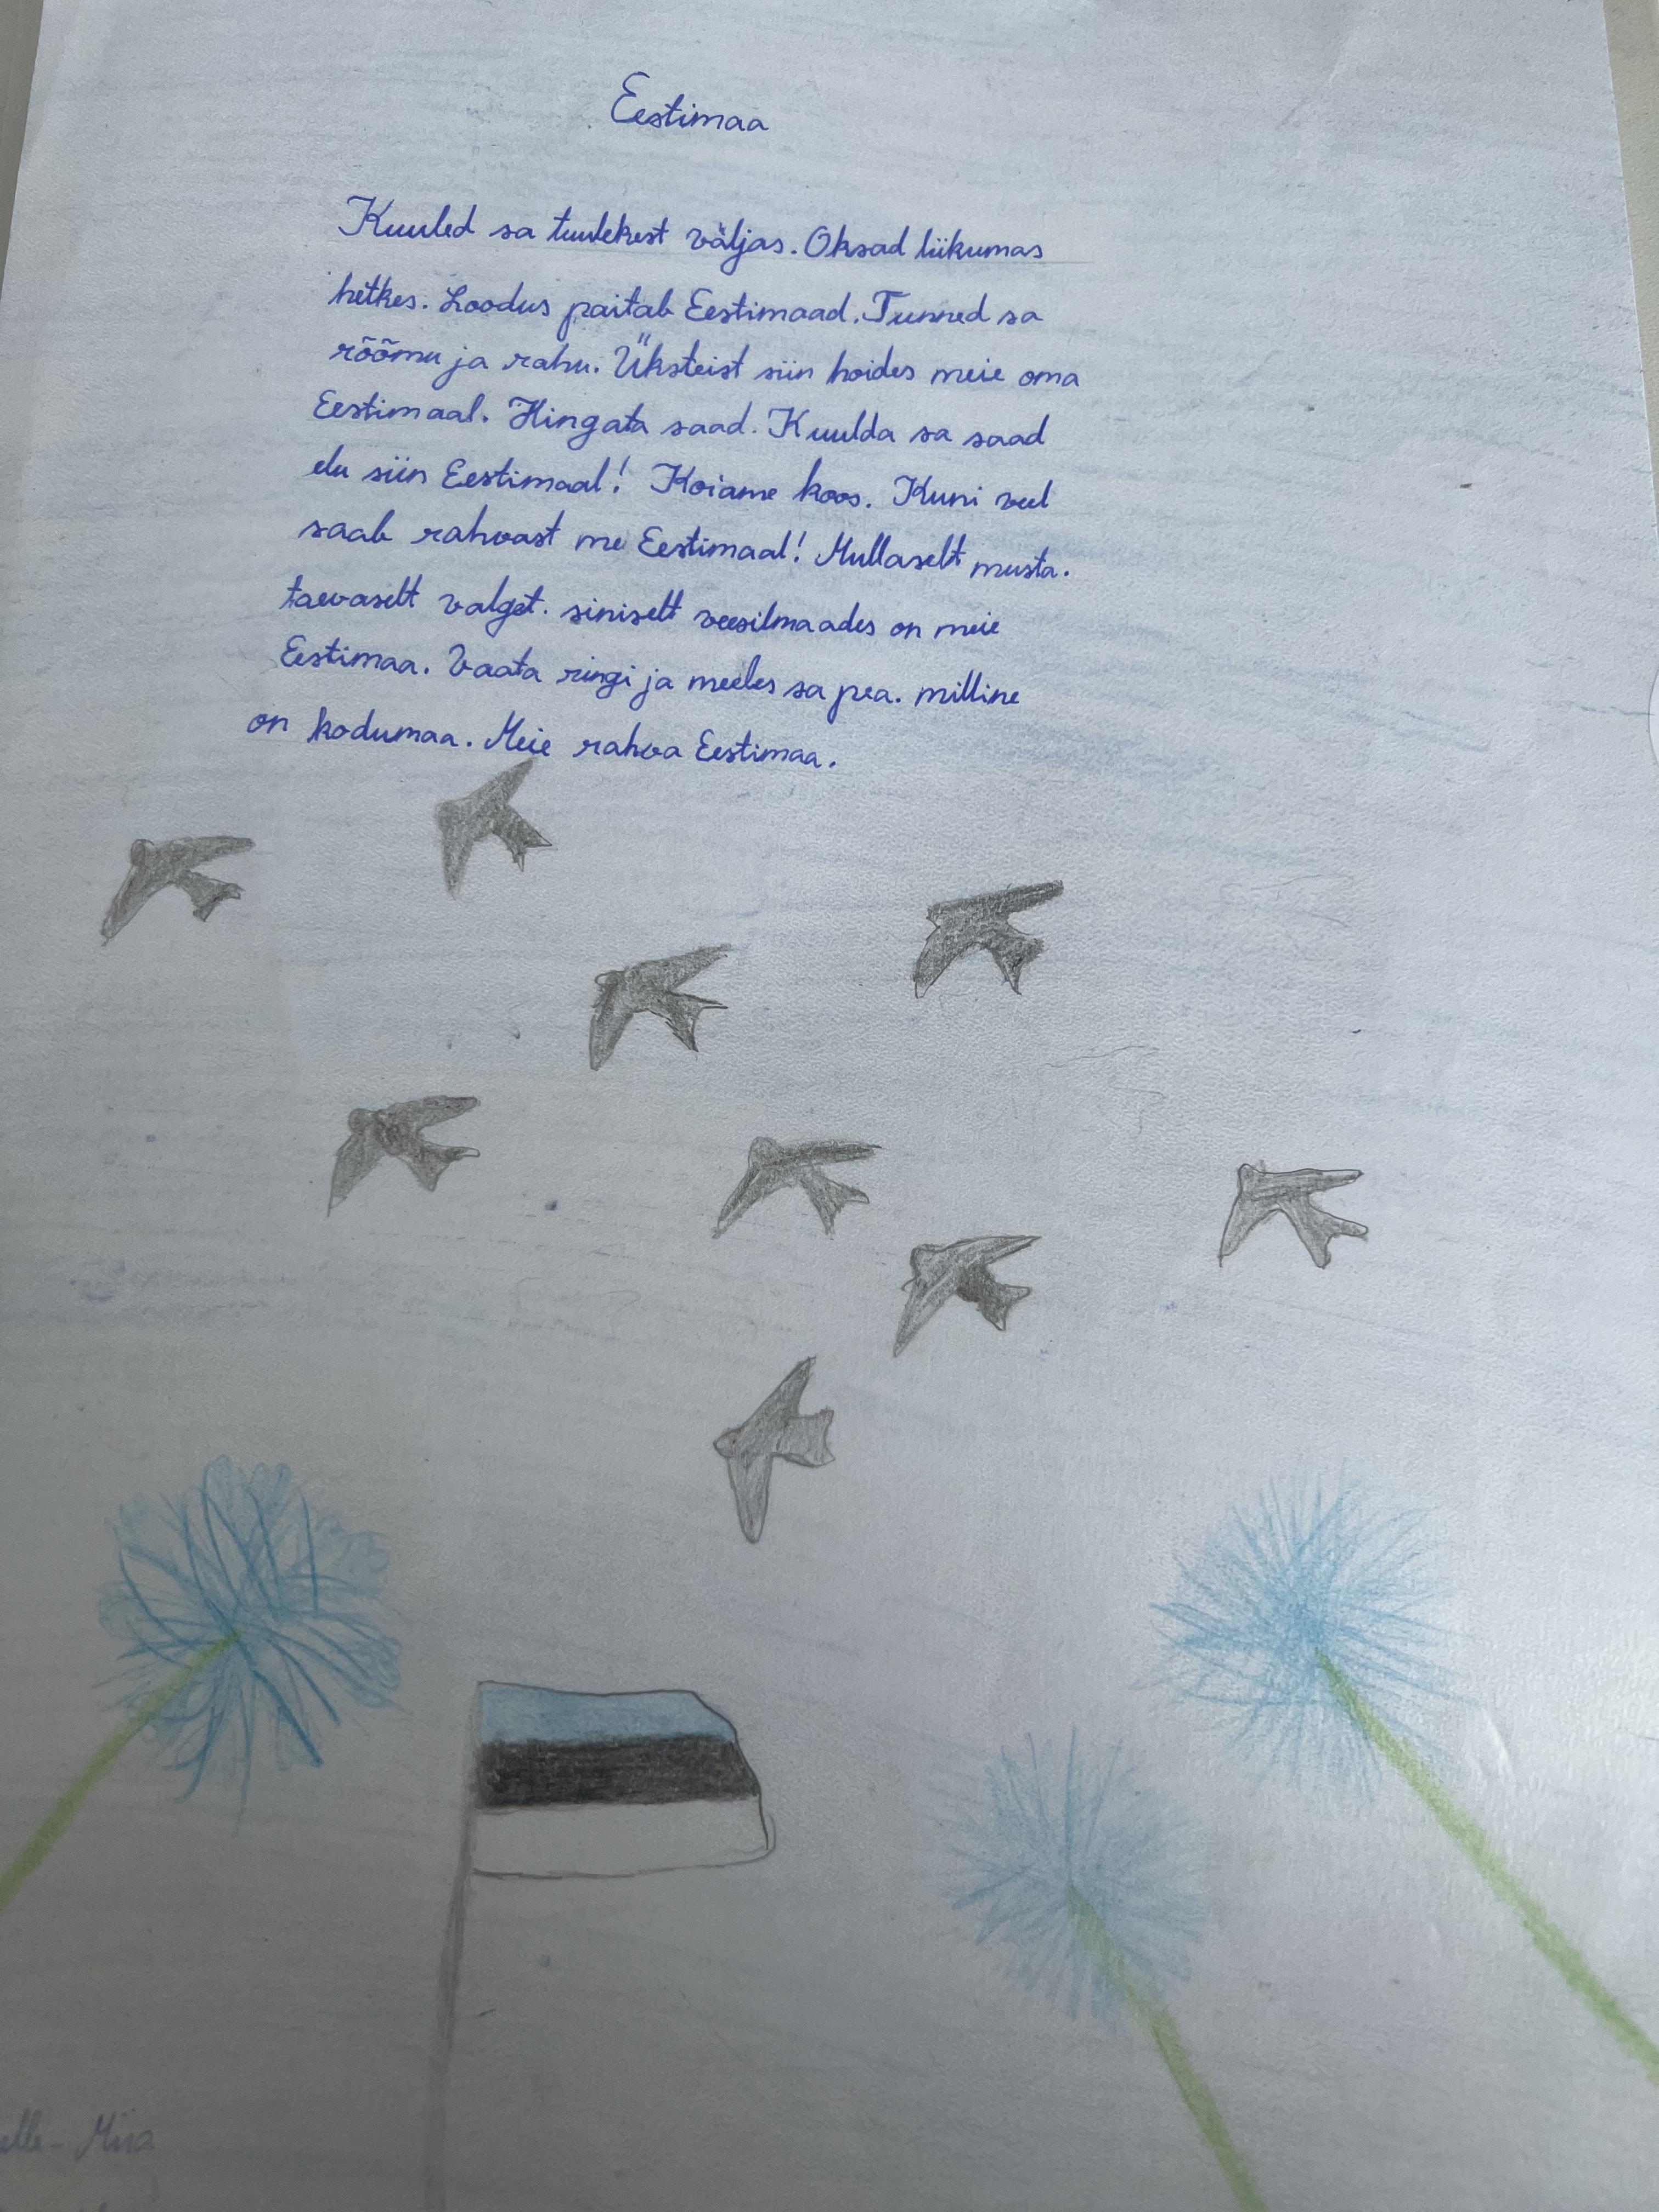 Eestimaa
Kuuled sa tuulekest väljas. Oksad liikumas
hetkes. Loodus paitab Eestimaad. Tunned sa
rõõmu ja rahu. Üksteist siin hoides meie oma
Eestimaal. Hingata saad. Kuulda sa saad
elu siin Eestimaal! Hoiame koos. Kuni veel
saab rahvast me Eestimaal! Mullaselt musta.
taevaselt valget. siniselt veesilmaades on meie
Eestimaa. Vaata ringi ja meeles sa pea. milline
on kodumaa. Meie rahva Eestimaa.
elle-Miia